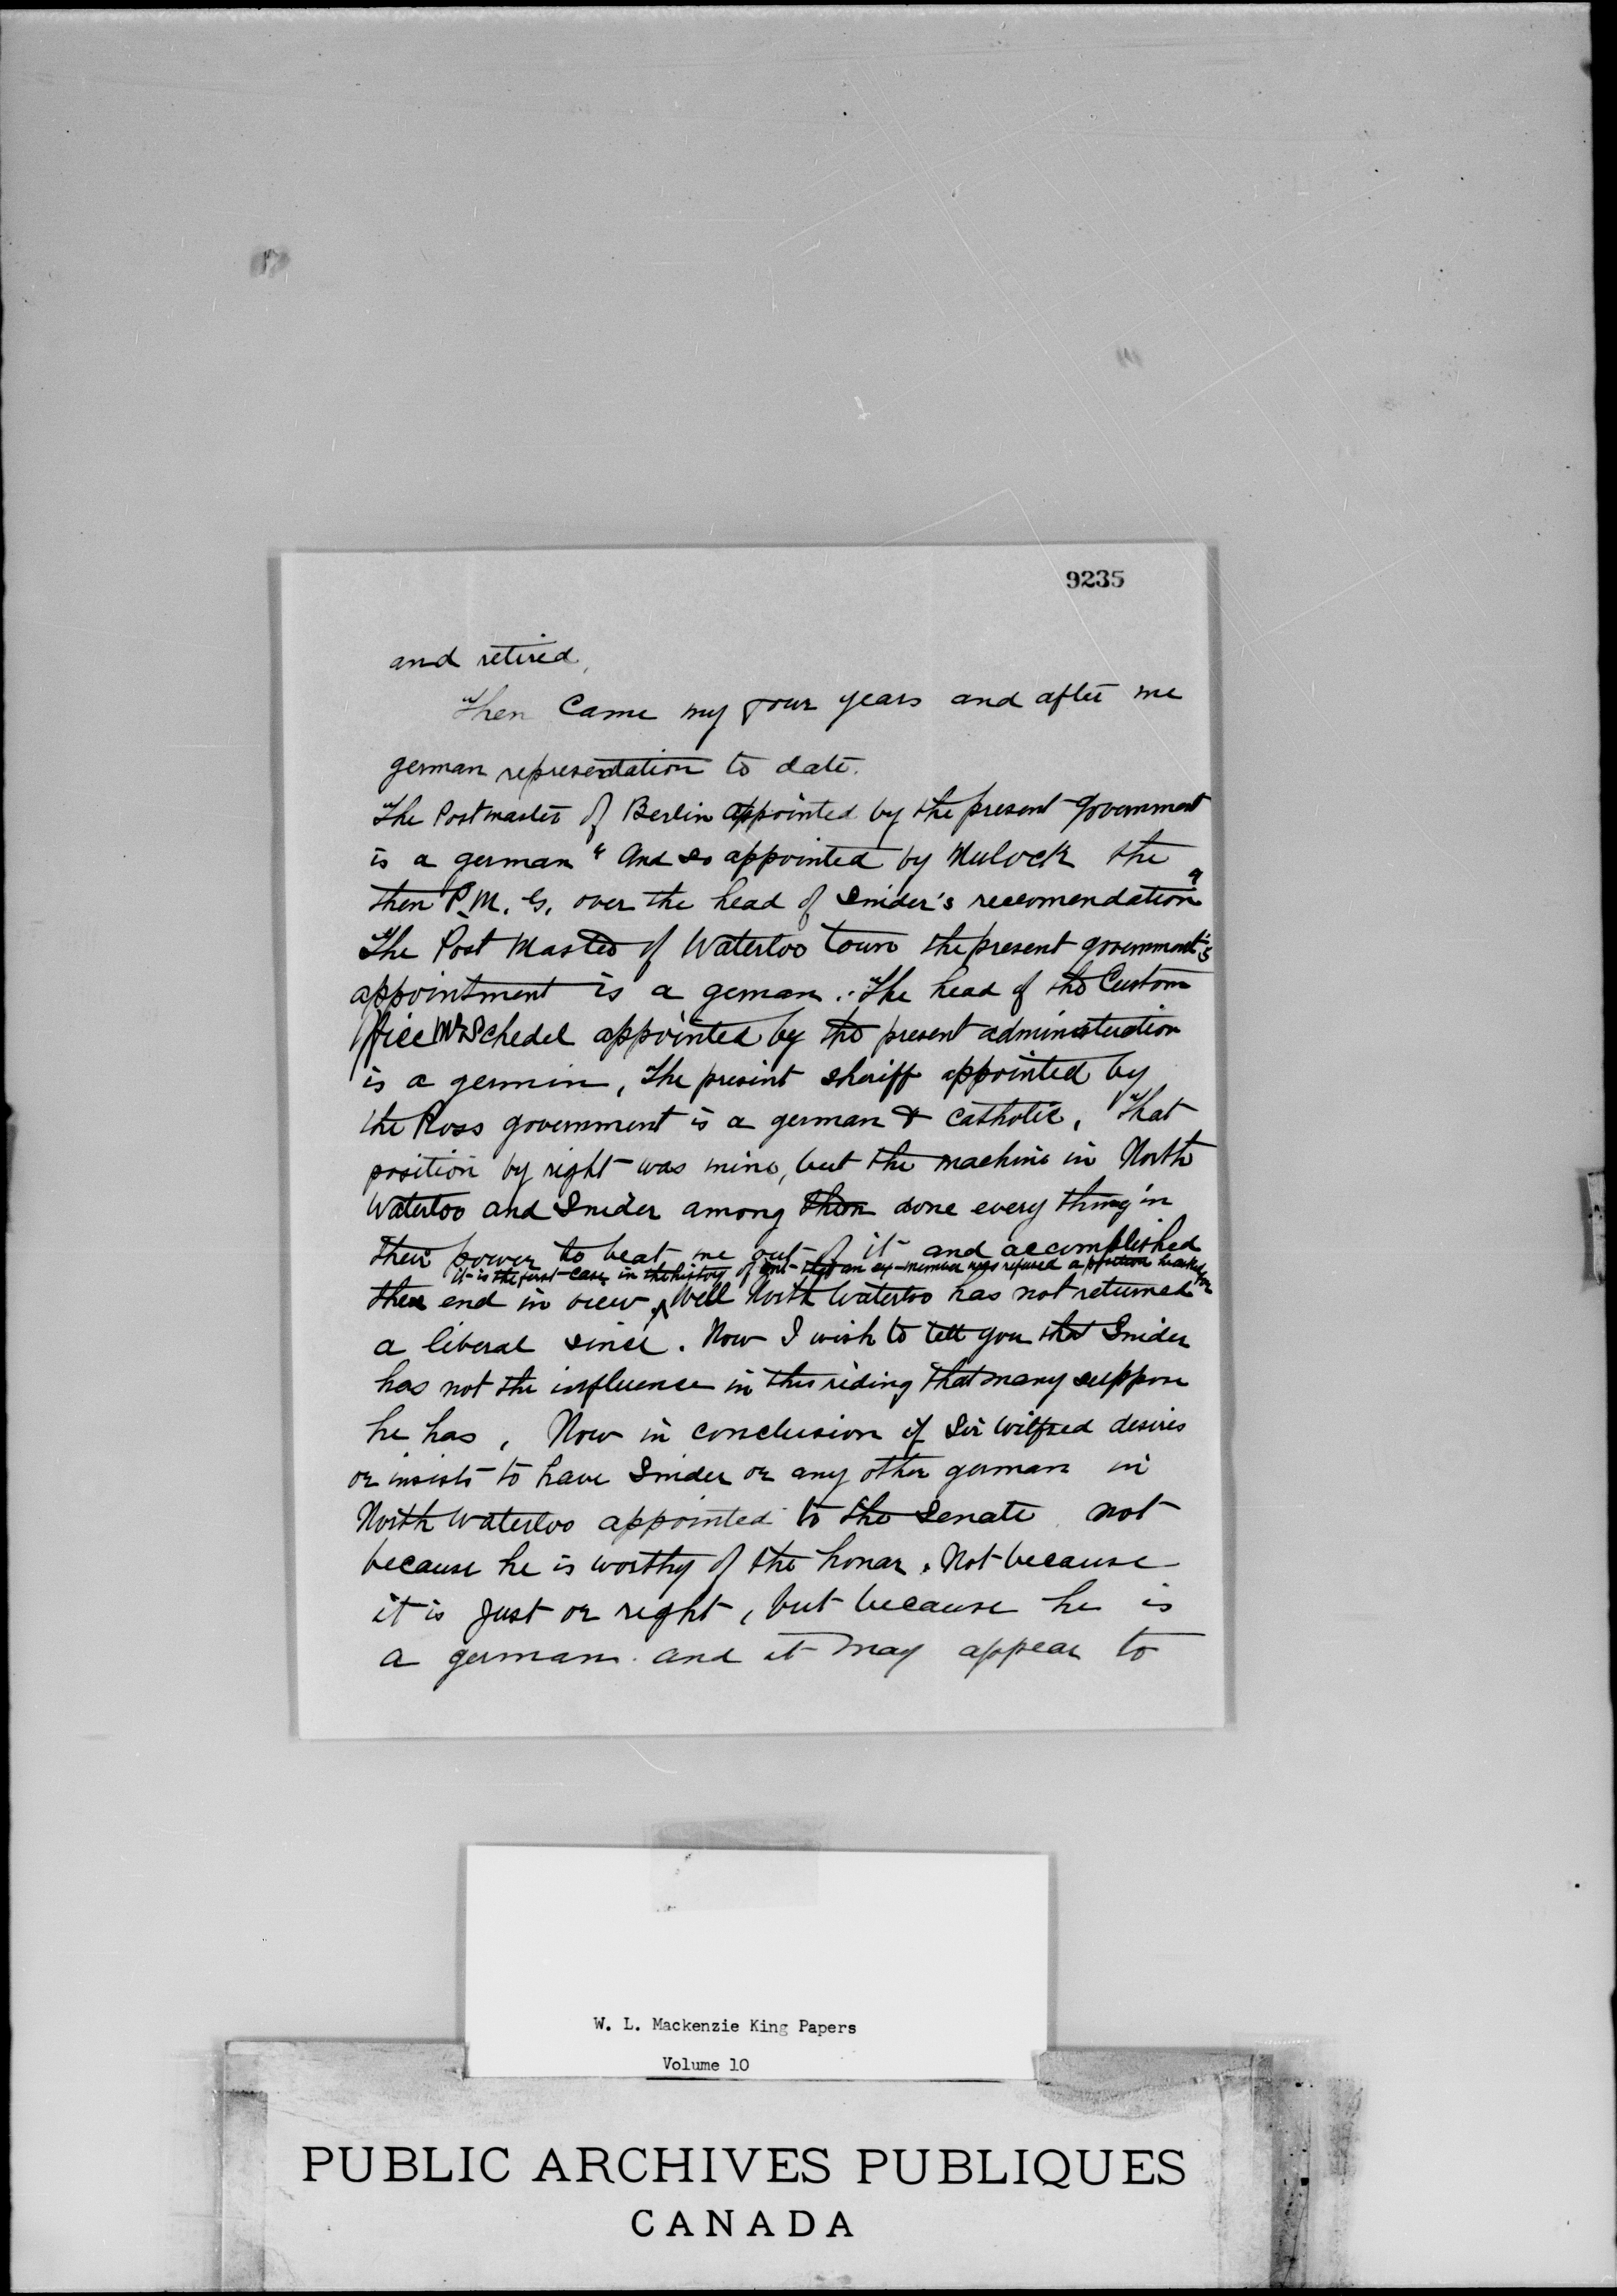 9235
and retired,
Then Came my four years and after me
german representation to date.
The Postmaster of Berlin appointed by the present government
is a german " and so appointed by Mulock the
then P.M.G. over the head of Snider's reccomendation "
The Post Master of Waterloo town the present government's
appointment is a geman. The head of the Custom
Office Mr Schedel appointed by the present administration
is a german, The present sheriff appointed by
the Ross government is a german & catholic, That
position by right was mine, but the machine in North
Waterloo and Snider among them done every thing in
their power to beat me out of it and accomplished
it is the first case in the history of that an ex-member was refused a position he asked for
their end in view, Well North Waterloo has not returned
a liberal since. Now I wish to tell you that Snider
has not the influence in this riding that many suppose
he has, Now in conclusion if Sir Wilfred desires
or insists to have Snider or any other german in
North Waterloo appointed to the Senate not
because he is worthy of the honar. Not because
it is Just or right, but because he is
a german. and it may appear to
W. L. Mackenzie King Papers
Volume 10
PUBLIC ARCHIVES PUBLIQUES
CANADA